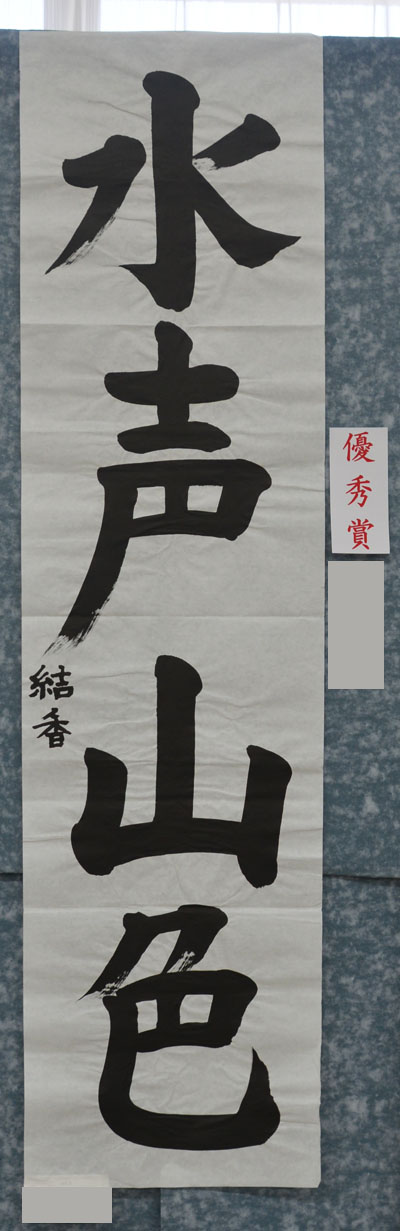 優秀賞
水声山色
結香